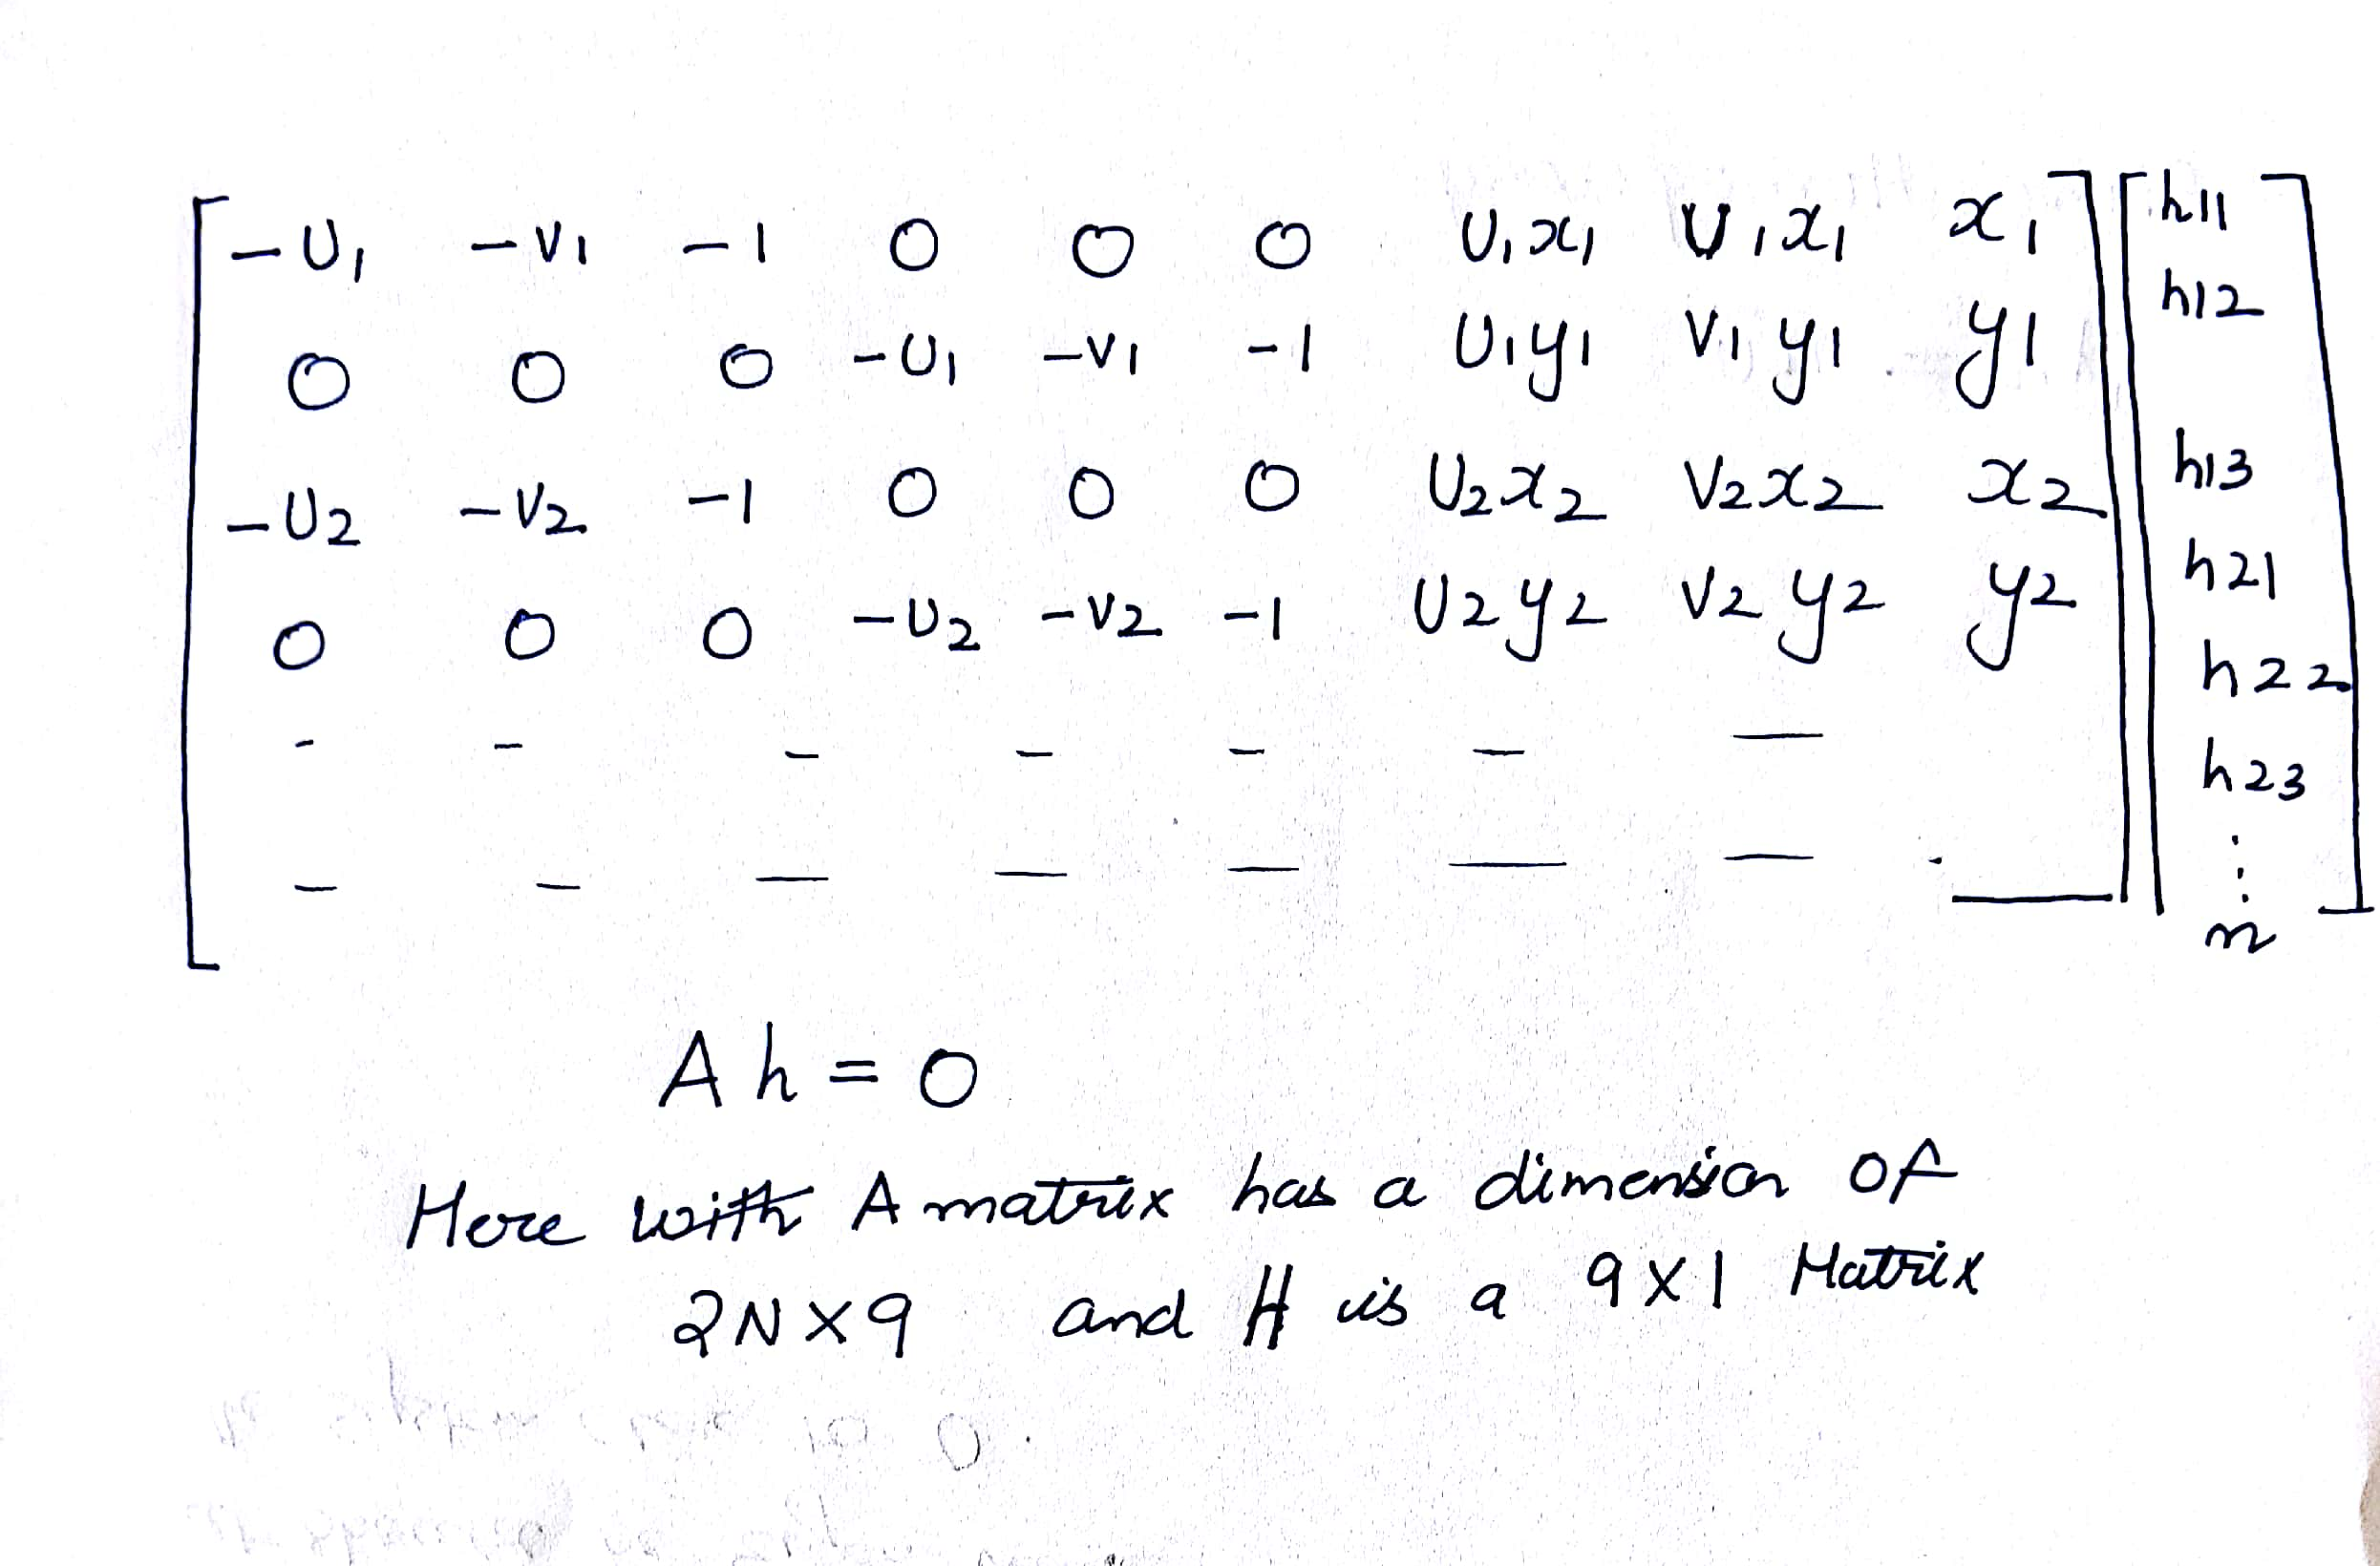 -U₁ -V₁ -1 0 0 0 U₁x₁ V₁x₁ x₁ h11
h12
0 0 0 -U₁ -V₁ -1 U₁y₁ V₁y₁ y₁
-U₂ -V₂ -1 0 0 0 U₂x₂ V₂x₂ x₂ h13
h21
0 0 0 -U₂ -V₂ -1 U₂y₂ V₂y₂ y₂
h22
- - - - - - - h23
- - - - - - - ⋮
n
Ah = 0
Here with A matrix has a dimension of
2N×9 and H is a 9×1 Matrix